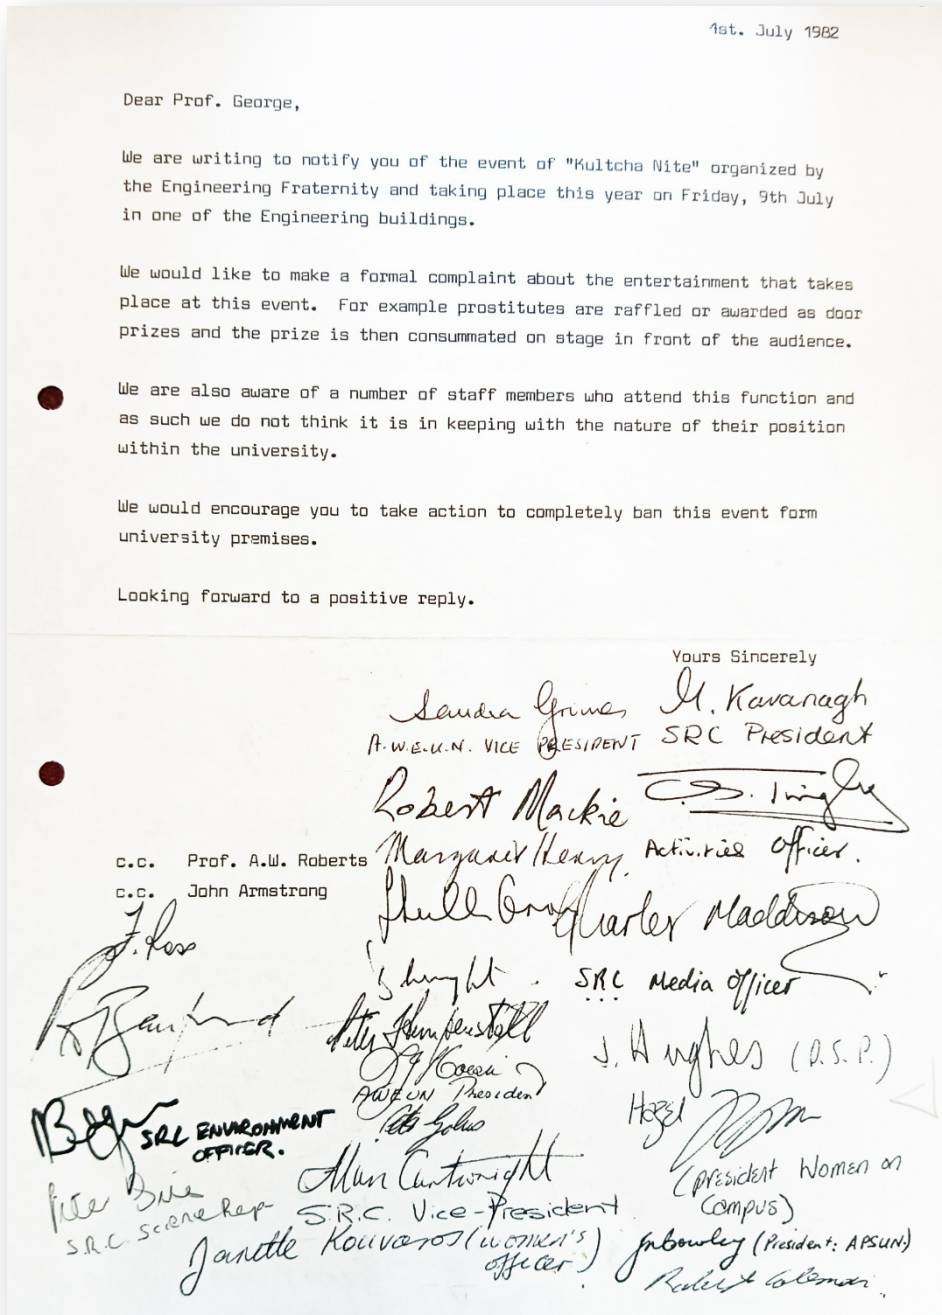 1st. July 1982
Dear Prof. George,
We are writing to notify you of the event of "Kultcha Nite" organized by
the Engineering Fraternity and taking place this year on Friday, 9th July
in one of the Engineering buildings.
We would like to make a formal complaint about the entertainment that takes
place at this event. For example prostitutes are raffled or awarded as door
prizes and the prize is then consummated on stage in front of the audience.
We are also aware of a number of staff members who attend this function and
as such we do not think it is in keeping with the nature of their position
within the university.
We would encourage you to take action to completely ban this event form
university premises.
Looking forward to a positive reply.
Yours Sincerely
Sandra Grimes M. Kavanagh
A.W.E.U.N. VICE PRESIDENT SRC President
Robert Mackie
c.c. Prof. A.W. Roberts Margaret Henry Activities Officer.
c.c. John Armstrong
Charles Maddison
F. Ross
SRC Media Officer
Peter Hempenstall
J. Hughes (D.S.P.)
AWEUN President
Hazel
SRC ENVIRONMENT
OFFICER.
Alan Cartwright
(President Women on
Campus)
Peter
S.R.C. Science Rep
S.R.C. Vice-President
Janette Kouvaros (Women's
officer)
(President: APSUN.)
Coleman